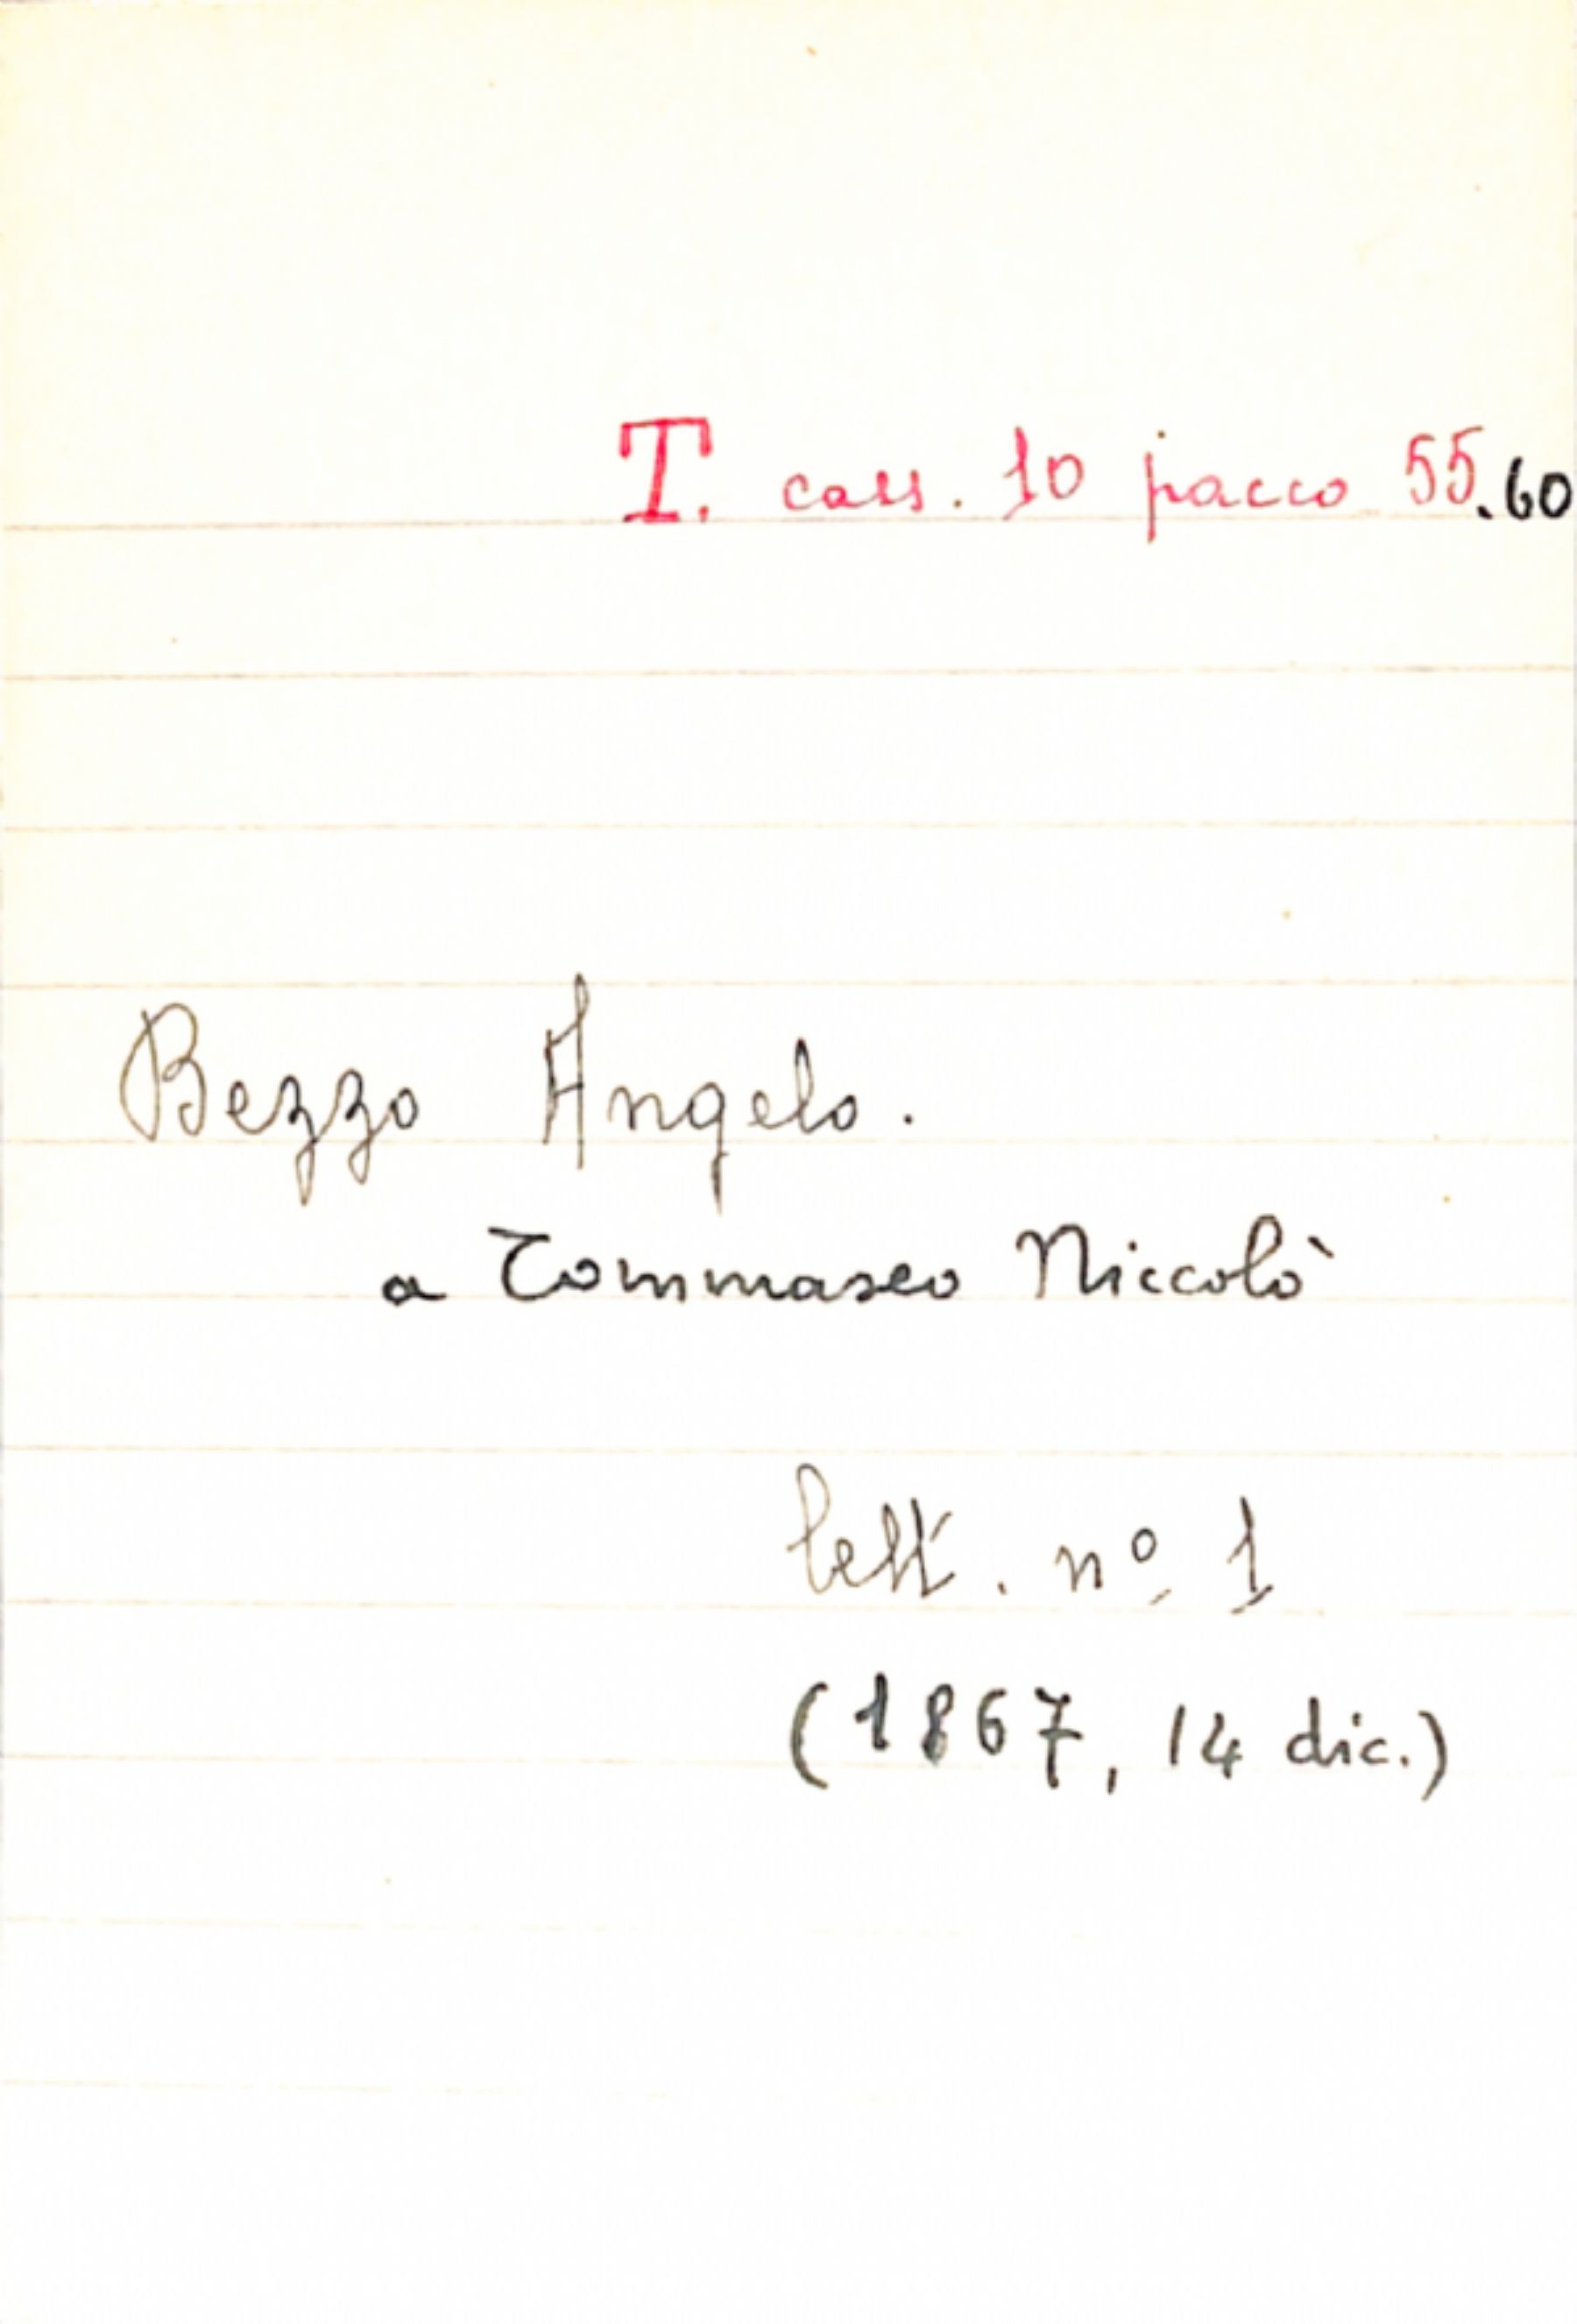 T. cass. 10 pacco 55.60
Bezzo Angelo.
a Tommaseo Niccolò
lett. nº 1
(1867, 14 dic.)